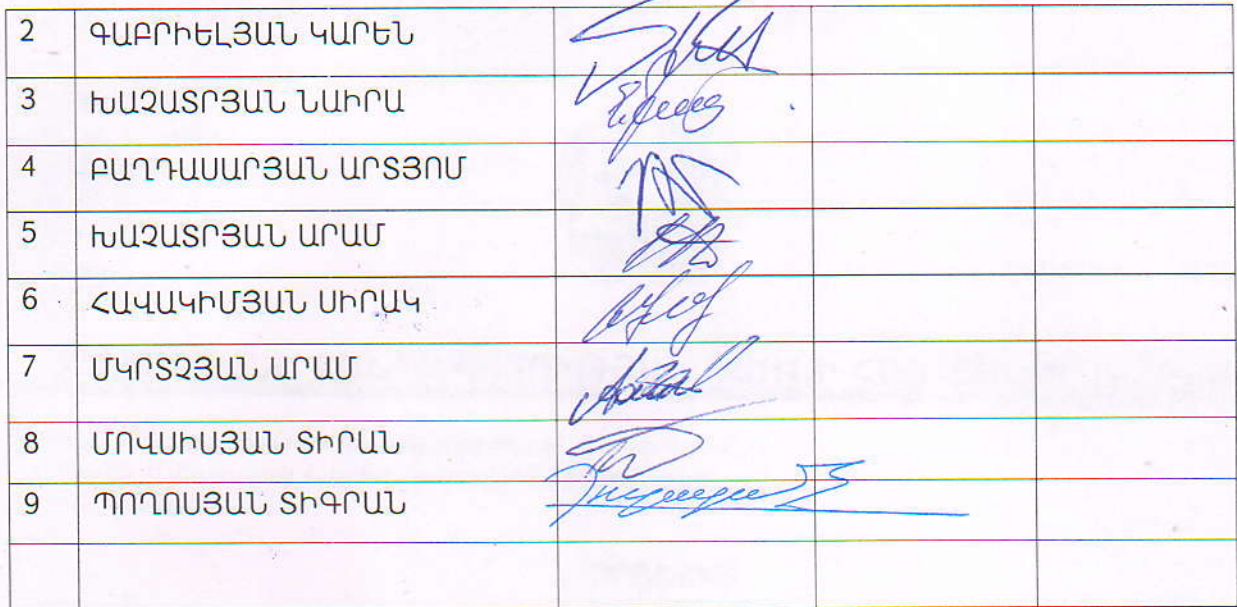 2 ԳԱԲՐԻԵԼՅԱՆ ԿԱՐԵՆ
3 ԽԱՉԱՏՐՅԱՆ ՆԱԻՐԱ
4 ԲԱՂԴԱՍԱՐՅԱՆ ԱՐՏՅՈՄ
5 ԽԱՉԱՏՐՅԱՆ ԱՐԱՄ
6 ՀԱՎԱԿԻՄՅԱՆ ՍԻՐԱԿ
7 ՄԿՐՏՉՅԱՆ ԱՐԱՄ
8 ՄՈՎՍԻՍՅԱՆ ՏԻՐԱՆ
9 ՊՈՂՈՍՅԱՆ ՏԻԳՐԱՆ